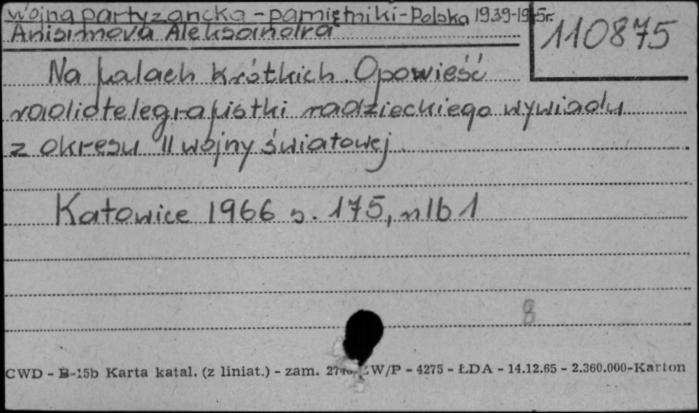 wojna partyzancka - pamiętniki - Polska 1939-1945r.
Anisimova Aleksandra
110875
Na falach krótkich. Opowieść
radiotelegrafistki radzieckiego wywiadu
z okresu II wojny światowej.
Katowice 1966 s. 175, nlb 1
8
CWD - B-15b Karta katal. (z liniat.) - zam. W/P - 4275 - ŁDA - 14.12.65 - 2.360.000-Karton